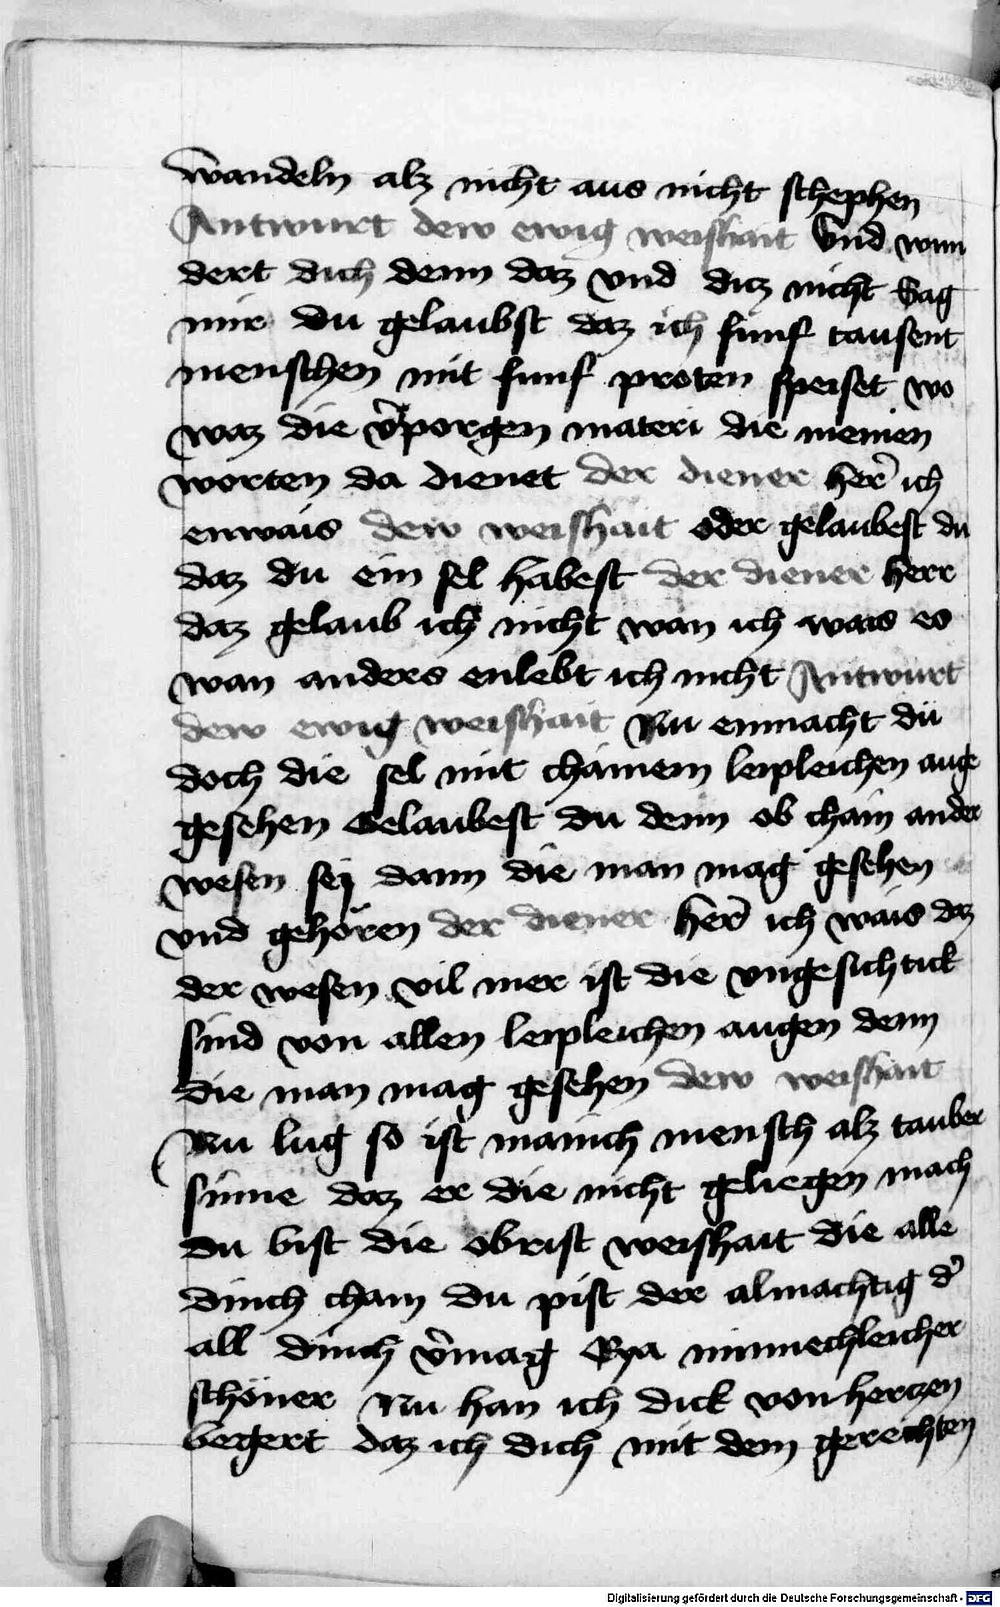 wandeln alz nicht aus nicht schephen
Antwurt dew ewig weishait Und wun
dert dich denn daz vnd ditz nicht Sag
mir du gelaubst daz ich funf tausent
menschen mit funf proten speiset wo
waz die v̉porgen materi die meinen
worten da dienet der diener her̉ ich
enwais dew weishait oder gelaubest du
daz du ein sel habest der diener herr
daz gelaub ich nicht wan ich wais es
wan anders enlebt ich nicht Antwurt
dew ewig weishait Nu enmacht du
doch die sel mit chainem leipleichen auge
gesehen Gelaubest du denn ob chain ander
wesen sey dann die man mag gesehen
vnd gehören der diener her̉ ich wais daz
der wesen vil mer ist die vngesichtick
sind von allen leipleichen augen denn
die man mag gesehen dew weishait
Nu lug so ist manich mensch alz tauber
sinne daz er die nicht geliegen mach
du bist die obrist weishait die alle
dinch chan du pist der almachtig d̉
all dinch v̉mag Eya minnechleicher
schöner Nu han ich dick von hertzen
begert daz ich dich mit dem gerechten
Digitalisierung gefördert durch die Deutsche Forschungsgemeinschaft - DFG